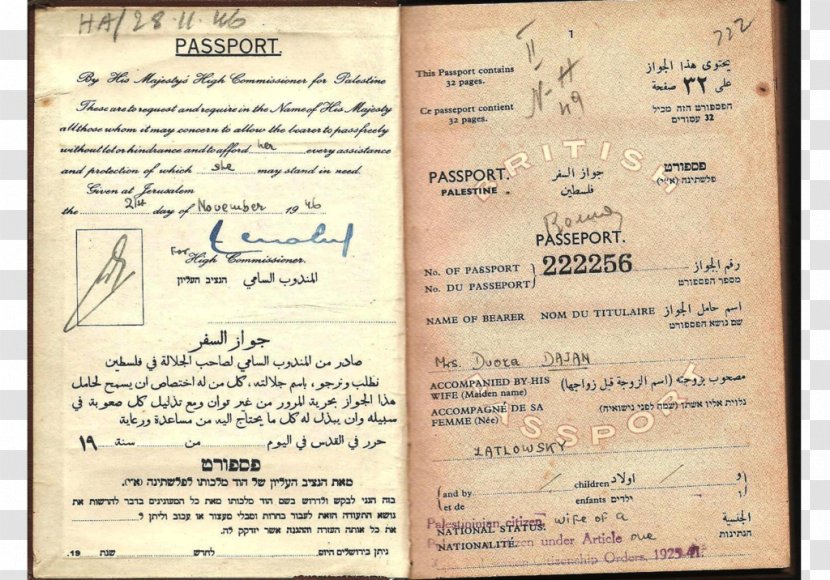 HA/28.11.46
PASSPORT.
By His Majesty's High Commissioner for Palestine
These are to request and require in the Name of His Majesty
all those whom it may concern to allow the bearer to pass freely
without let or hindrance and to afford her every assistance
and protection of which she may stand in need.
Given at Jerusalem
the 21st day of November 1946
For High Commissioner.
المندوب السامي הנציב העליון
جواز السفر
صادر من المندوب السامي لصاحب الجلالة في فلسطين
نطلب ونرجو، باسم جلالته، كل من له اختصاص ان يسمح لحامل
هذا الجواز بحرية المرور من غير توان ومع تذليل كل صعوبة في
سبيله وان يبذل له كل ما يحتاج اليه من مساعدة ورعاية
حرر في القدس في اليوم من سنة ١٩
פספורט
מאת הנציב העליון של הוד מלכותו לפלשתינה (א״י).
בזה הנני לבקש ולדרוש בשם הוד מלכותו את כל הממונים בדבר להרשות את
נושא התעודה הזאת לעבור בחרות ומבלי מעצור או עכוב וליתן ל
את כל אותה העזרה וההגנה אשר יזדקק לה.
ניתן בירושלים היום. לחדש שנת 19
1
222
II
N-H
49
This Passport contains
32 pages.
يحتوى هذا الجواز
على ٣٢ صفحة
Ce passeport contient
32 pages.
הפספורט הזה מכיל
32 עמודים
BRITISH
PASSPORT.
PALESTINE
جواز السفر
فلسطين
פספורט
פלשתינה (א״י)
PASSEPORT.
No. OF PASSPORT
No. DU PASSEPORT
222256
رقم الجواز
מספר הפספורט
NAME OF BEARER NOM DU TITULAIRE اسم حامل الجواز
שם נושא הפספורט
Mrs. Dvora DAJAN
ACCOMPANIED BY HIS
WIFE (Maiden name)
مصحوب بزوجته (اسم الزوجة قبل زواجها)
ACCOMPAGNÉ DE SA
FEMME (Née)
נלוית אליו אשתו (שמה לפני נישואיה)
PASSPORT
ZATLOWSKY
and by children اولاد و
et de enfants ילדים ו
Palestinian citizen, wife of a
NATIONAL STATUS.
الجنسية
NATIONALITÉ.
הנתינות
citizen under Article one
Citizenship Orders, 1925-41.